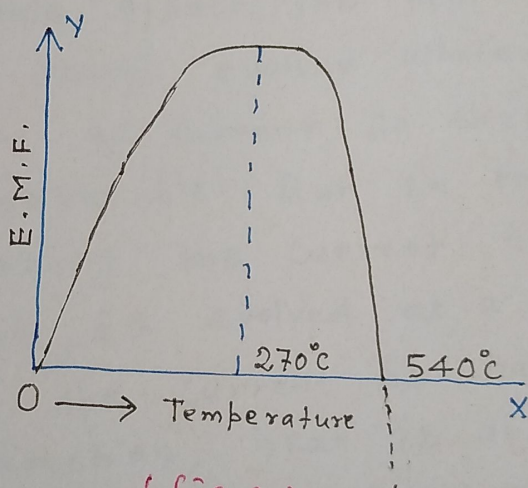 Y
E.M.F.
270°C
540°C
O → Temperature
X